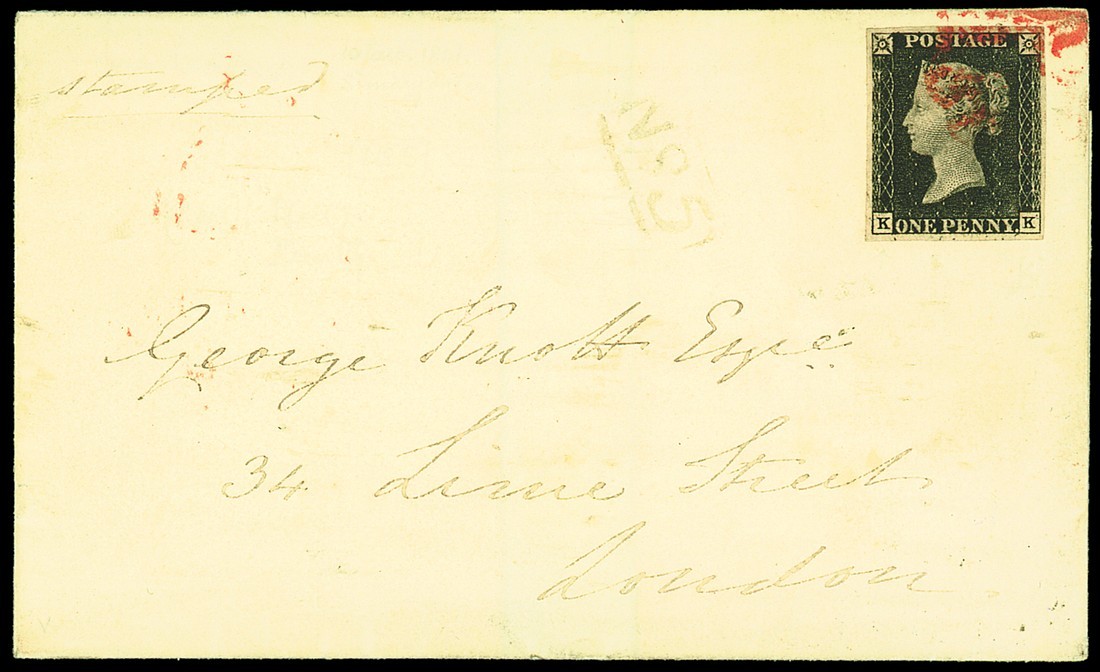 stamped
POSTAGE
No 5
K ONE PENNY K
George Knott Esqre
34 Lime Street
London